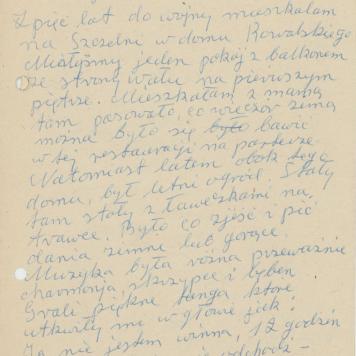 Z pięć lat do wojny mieszkałam
na Szczelni w domu Kowalskiego
Mieliśmy jeden pokój z balkonem
ze strony wału na pierwszym
piętrze. Mieszkałam z mamą
tam pasowało, co wieczór zimą
można było się było bawić
w tej restauracji na parterze
Natomiast latem obok tego
domu, był letni ogród. Stały
tam stoły z ławeczkami na
trawce. Było co zjeść i pić
dania zimne lub gorące.
Muzyka była różna przeważnie
charmonja, skrzypce i byben
Grali piękne tanga które
utkwiły mi w głowie jak:
Ja nie jestem winna, 12 godzin
odchodzi -